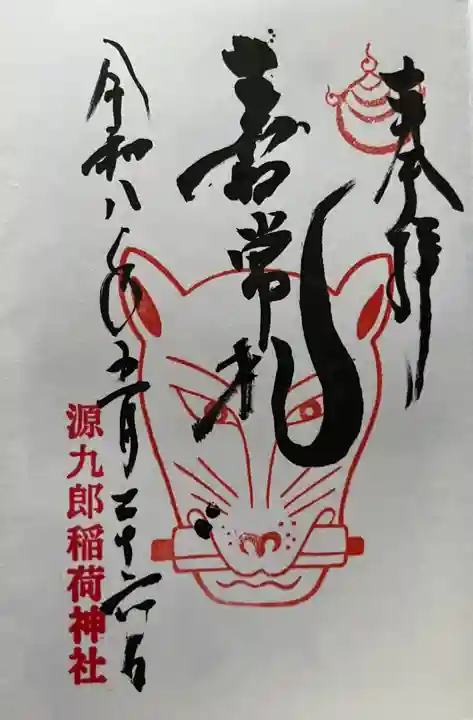 奉拝
常
令和八年五月二十六日
源九郎稲荷神社